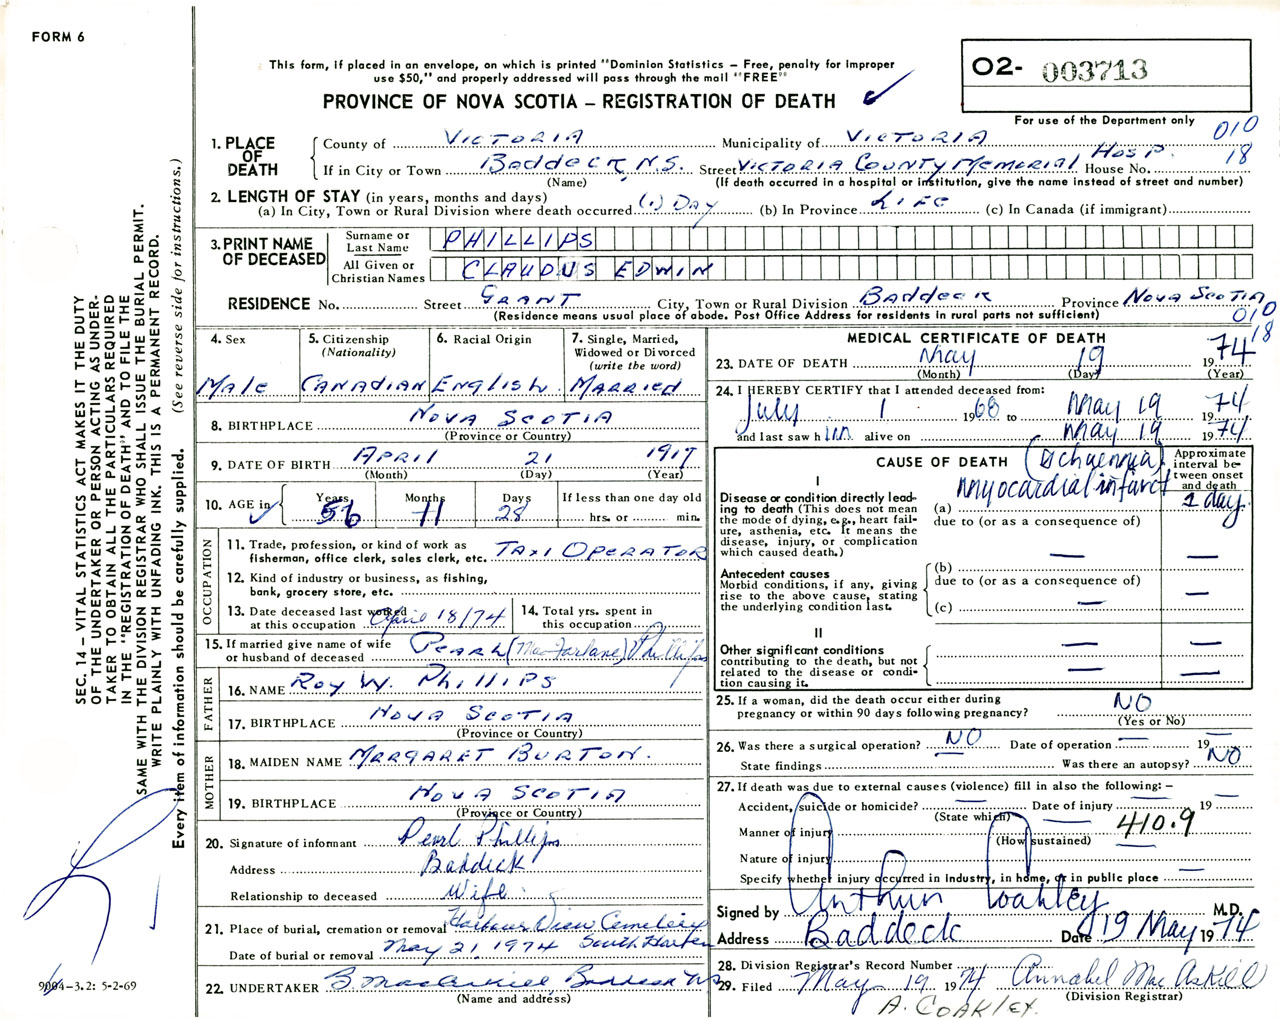 FORM 6
This form, if placed in an envelope, on which is printed "Dominion Statistics – Free, penalty for improper
use $50," and properly addressed will pass through the mail "FREE"
PROVINCE OF NOVA SCOTIA – REGISTRATION OF DEATH
O2- 003713
For use of the Department only
010
18
1. PLACE OF DEATH
County of VICTORIA Municipality of VICTORIA
If in City or Town BADDECK, N.S. Street VICTORIA COUNTY MEMORIAL HOSP. House No.
(Name) (If death occurred in a hospital or institution, give the name instead of street and number)
2. LENGTH OF STAY (in years, months and days)
(a) In City, Town or Rural Division where death occurred (1) DAY (b) In Province LIFE (c) In Canada (if immigrant)
3. PRINT NAME OF DECEASED
Surname or Last Name PHILLIPS
All Given or Christian Names CLAUDUS EDWIN
RESIDENCE No. Street GRANT City, Town or Rural Division BADDECK Province NOVA SCOTIA
(Residence means usual place of abode. Post Office Address for residents in rural parts not sufficient)
010
18
4. Sex MALE
5. Citizenship (Nationality) CANADIAN
6. Racial Origin ENGLISH
7. Single, Married, Widowed or Divorced (write the word) MARRIED
8. BIRTHPLACE NOVA SCOTIA
(Province or Country)
9. DATE OF BIRTH APRIL 21 1917
(Month) (Day) (Year)
10. AGE in Years 56 Months 11 Days 28 If less than one day old hrs. or min.
OCCUPATION
11. Trade, profession, or kind of work as
fisherman, office clerk, sales clerk, etc. TAXI OPERATOR
12. Kind of industry or business, as fishing,
bank, grocery store, etc.
13. Date deceased last worked
at this occupation April 18/74
14. Total yrs. spent in
this occupation
15. If married give name of wife
or husband of deceased PEARL (MacFarlane) Phillips
FATHER
16. NAME ROY W. PHILLIPS
17. BIRTHPLACE NOVA SCOTIA
(Province or Country)
MOTHER
18. MAIDEN NAME MARGARET BURTON.
19. BIRTHPLACE NOVA SCOTIA
(Province or Country)
20. Signature of informant Pearl Phillips
Address Baddeck
Relationship to deceased Wife
21. Place of burial, cremation or removal Harbour View Cemetery
Date of burial or removal May 21, 1974 South
22. UNDERTAKER Baddeck NS
(Name and address)
MEDICAL CERTIFICATE OF DEATH
23. DATE OF DEATH May 19 1974
(Month) (Day) (Year)
24. I HEREBY CERTIFY that I attended deceased from:
July 1 1968 to May 19 1974
and last saw him alive on May 19 1974
CAUSE OF DEATH
Approximate interval between onset and death
I
Disease or condition directly leading to death (This does not mean the mode of dying, e.g., heart failure, asthenia, etc. It means the disease, injury, or complication which caused death.)
(a) Myocardial infarct 1 day
due to (or as a consequence of)
Antecedent causes
Morbid conditions, if any, giving rise to the above cause, stating the underlying condition last.
(b) —
due to (or as a consequence of)
(c) —
II
Other significant conditions
contributing to the death, but not related to the disease or condition causing it.
25. If a woman, did the death occur either during
pregnancy or within 90 days following pregnancy? NO
(Yes or No)
26. Was there a surgical operation? NO Date of operation — 19
State findings Was there an autopsy? NO
27. If death was due to external causes (violence) fill in also the following: –
Accident, suicide or homicide? — Date of injury — 19
(State which)
Manner of injury 410.9
(How sustained)
Nature of injury
Specify whether injury occurred in industry, in home, or in public place —
Signed by Arthur Coakley M.D.
Address Baddeck Date 19 May 1974
28. Division Registrar's Record Number
29. Filed May 19 1974 Annabel MacAskill
(Division Registrar)
A. COAKLEY.
SEC. 14 – VITAL STATISTICS ACT MAKES IT THE DUTY
OF THE UNDERTAKER OR PERSON ACTING AS UNDER-
TAKER TO OBTAIN ALL THE PARTICULARS REQUIRED
IN THE "REGISTRATION OF DEATH" AND TO FILE THE
SAME WITH THE DIVISION REGISTRAR WHO SHALL ISSUE THE BURIAL PERMIT.
WRITE PLAINLY WITH UNFADING INK. THIS IS A PERMANENT RECORD.
Every item of information should be carefully supplied. (See reverse side for instructions.)
9004–3.2: 5-2-69